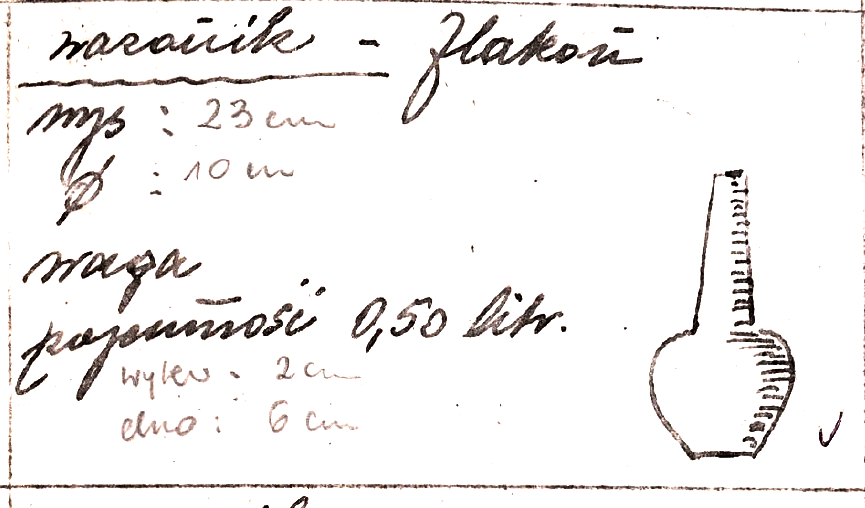 wazonik - flakon
wys : 23 cm
Ø : 10 cm
waga
pojemność 0,50 litr.
wylew - 2 cm
dno : 6 cm